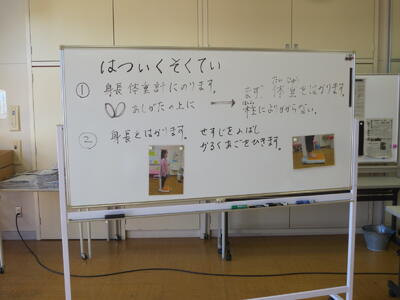 はついくそくてい
① 身長体重計にのります。
あしがたの上に
→
まず、体重をはかります。
たいじゅう
柱によりかからない。
② 身長をはかります。
せすじをのばし
かるくあごをひきます。